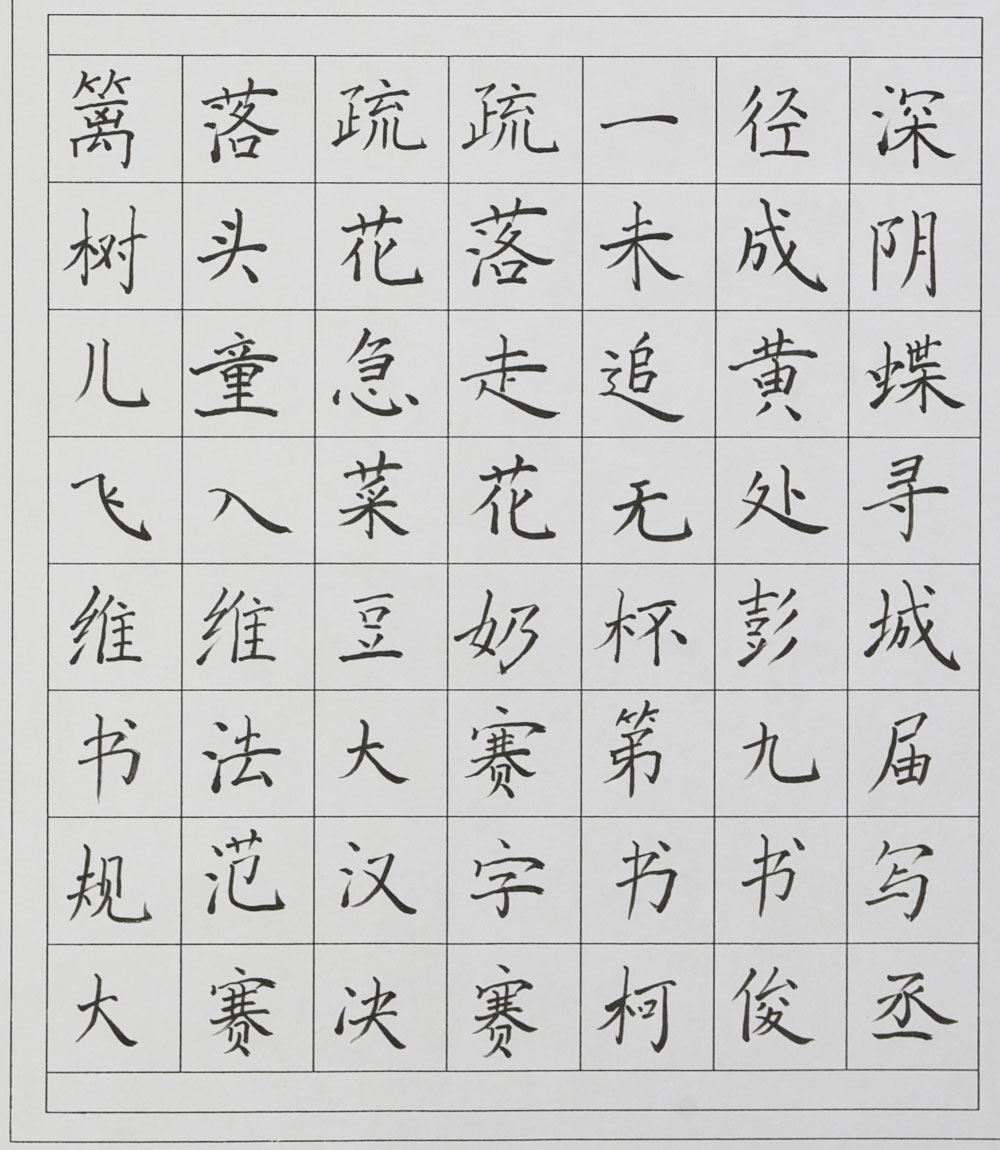 篱落疏疏一径深
树头花落未成阴
儿童急走追黄蝶
飞入菜花无处寻
维维豆奶杯彭城
书法大赛第九届
规范汉字书书写
大赛决赛柯俊丞